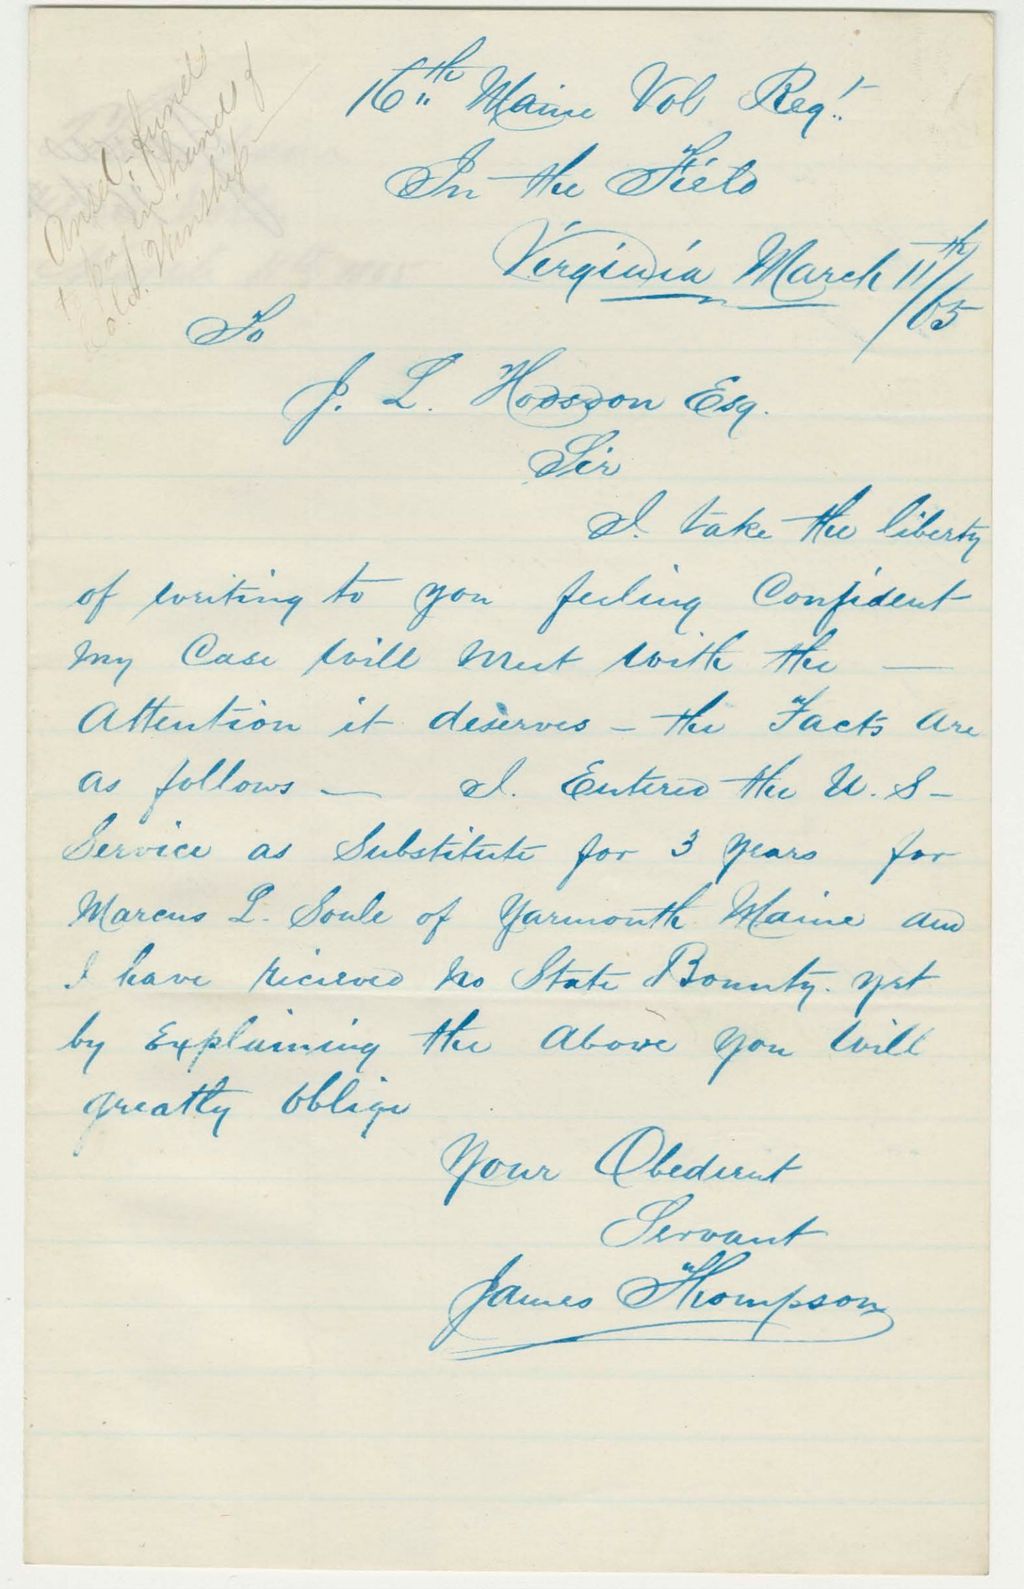 Ansd. funds
to be in hands of
Col. Winship
16th Maine Vol Regt.
In the Field
Virginia March 11th/65
To
J. L. Hodsdon Esq.
Sir
I. take the liberty
of writing to you feeling Confident
my Case will meet with the —
Attention it deserves – the Facts Are
as follows — I. Entered the U. S –
Service as Substitute for 3 years for
Marcus L. Soule of Yarmouth Maine and
I have recieved no State Bounty. yet
by Explaining the Above you will
greatly oblige
Your Obedient
Servant
James Thompson